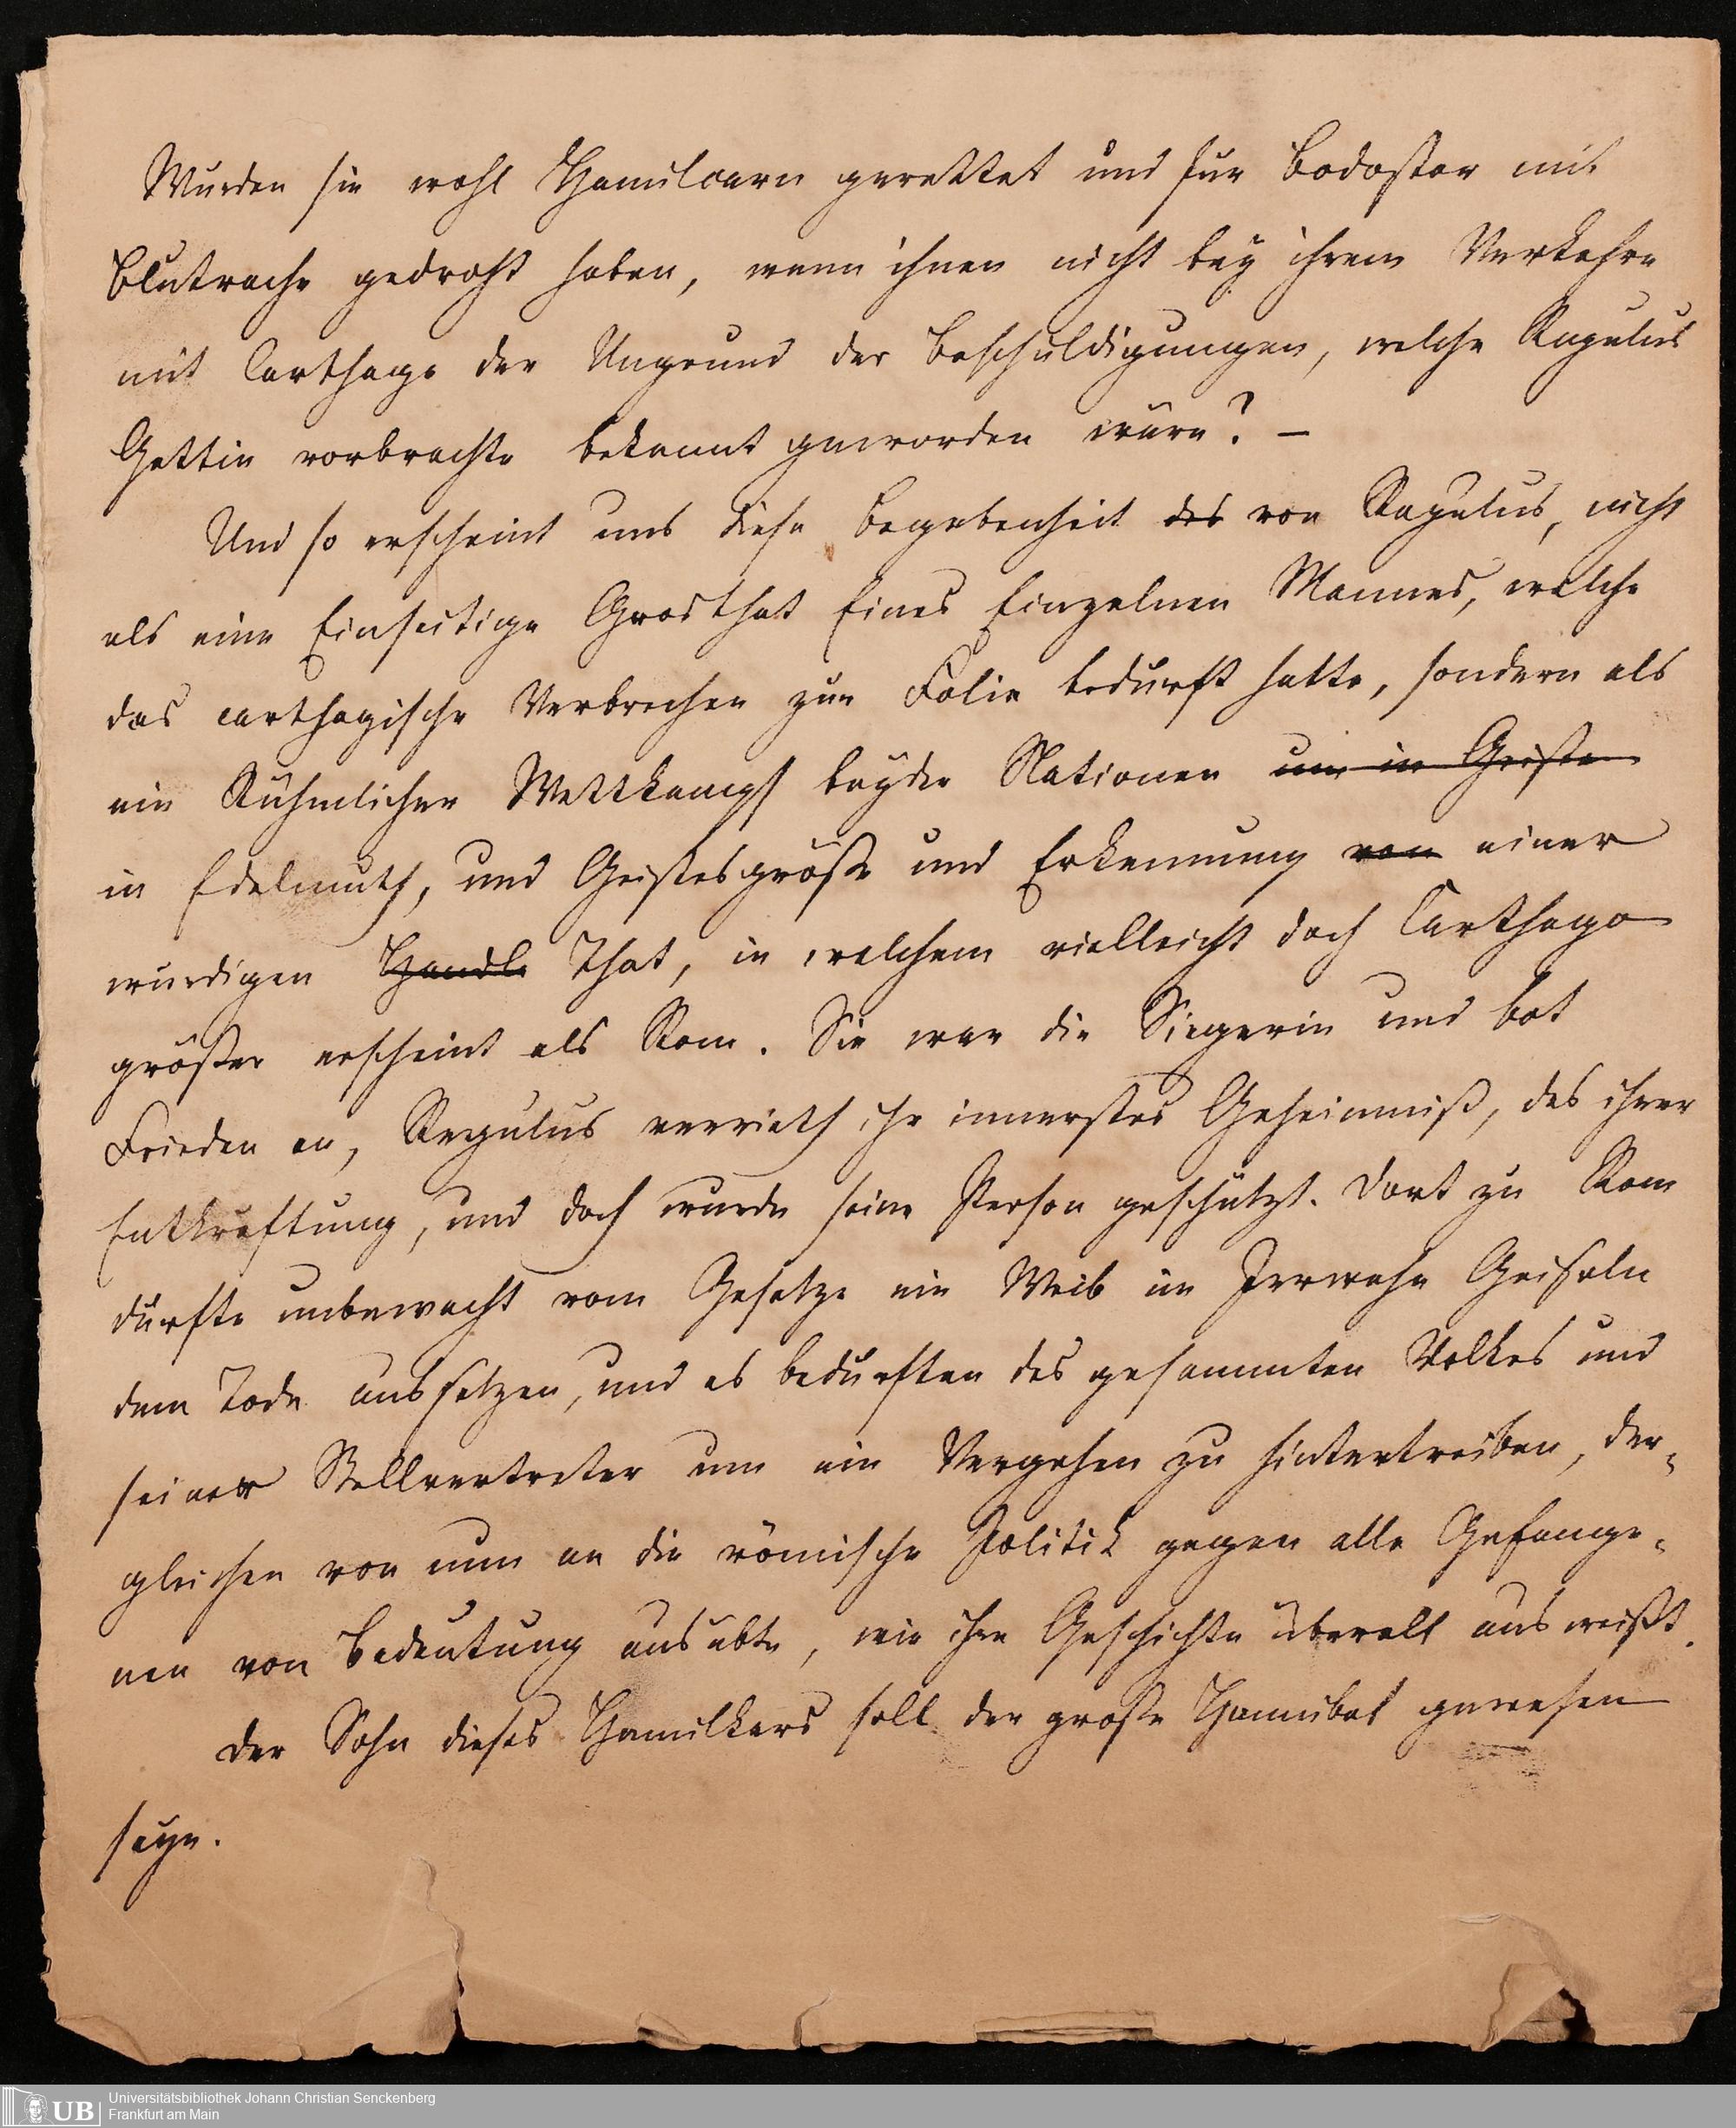 Wurden sie wohl Hamilcarn gerettet und für Bodostor mit
Blutrache gedroht haben, wenn ihnen nicht bey ihrem Verkehre
mit Carthago der Ungrund der Beschuldigungen, welche Regulus
Gattin vorbrachte bekannt geworden wäre? –
Und so erscheint uns diese Begebenheit des von Regulus, nicht
als eine Einseitige Grosthat Eines Einzelnen Mannes, welche
das carthagische Verbrechen zur Folie bedurft hatte, sondern als
ein Rühmlicher Wettkampf beyder Nationen um in Geiste
in Edelmuth, und Geistesgröße und Erkennung von einer
würdigen Handl That, in welchem vielleicht doch Carthago
größer erscheint als Rom. Sie war die Siegerin und bot
Frieden an, Regulus verrieth ihr innerstes Geheimniß, das ihrer
Entkräftung, und doch wurde seine Person geschützt. Dort zu Rom
durfte unbewacht vom Gesetze ein Weib im Irrwahn Geiseln
dem Tode aussetzen, und es bedurften des gesammten Volkes und
seiner Stellvertreter um ein Vergehen zu hintertreiben, der-
gleichen von nun an die römische Politik gegen alle Gefange-
nen von Bedeutung ausübte, wie ihre Geschichte überall ausweißt.
Der Sohn dieses Hamilkars soll der große Hannibal gewesen
seyn.
UB
Universitätsbibliothek Johann Christian Senckenberg
Frankfurt am Main